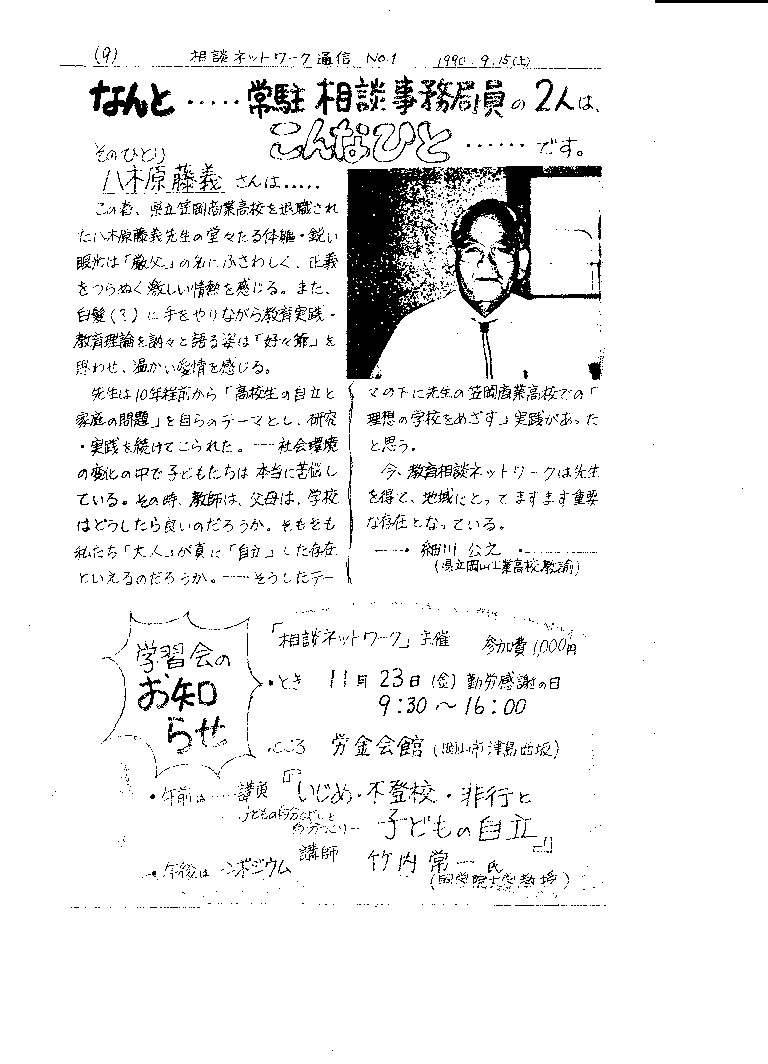 (9) 相談ネットワーク通信 No.1 1990.9.15(土)
なんと・・・・・常駐相談事務局員の2人は、
こんなひと・・・・・・です。
そのひとり
八木原藤義さんは・・・・・
この春、県立笠岡商業高校を退職され
た八木原藤義先生の堂々たる体軀・鋭い
眼光は「厳父」の名にふさわしく、正義
をつらぬく激しい情熱を感じる。また、
白髪(?)に手をやりながら教育実践・
教育理論を訥々と語る姿は「好々爺」を
思わせ、温かい愛情を感じる。
先生は10年程前から「高校生の自立と
家庭の問題」を自らのテーマとし、研究
・実践を続けてこられた。――社会環境
の変化の中で子どもたちは本当に苦悩し
ている。その時、教師は、父母は、学校
はどうしたら良いのだろうか。そもそも
私たち「大人」が真に「自立」した存在
といえるのだろうか。――そうしたテー
マの下に先生の笠岡商業高校での「
理想の学校をめざす」実践があった
と思う。
今、教育相談ネットワークは先生
を得て、地域にとってますます重要
な存在となっている。
細川 公之
(県立岡山工業高校教諭)
学習会の
お知
らせ
「相談ネットワーク」主催 参加費1,000円
・とき 11月23日(金)勤労感謝の日
9:30～16:00
・ところ 労金会館(岡山市津島西坂)
・午前は――講演『いじめ・不登校・非行と
子どもの自分くずしと
自分つくり―
子どもの自立』
講師 竹内常一氏
(国学院大学教授)
・午後は シンポジウム